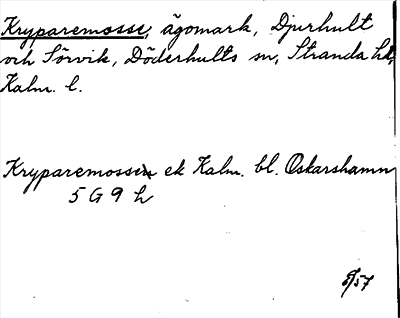 Kryparemosse, ägomark, Djurhult
och Sörvik, Döderhults sn, Stranda hd,
Kalm. l.
Kryparemossen ek Kalm. bl. Oskarshamn
5 G 9 h